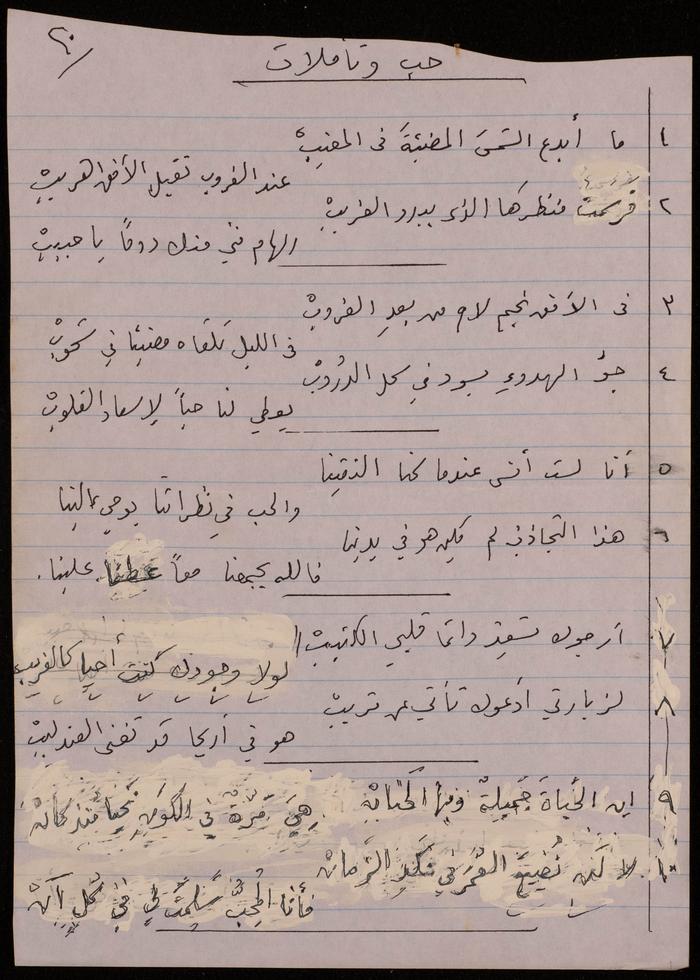 ٢٠/
حب وتأملات
١ ما أبدع الشمسَ المضيئةَ في المغيبْ
عند الغروب تقيل الأفق الهريبْ
٢ فرسمت منظرها الذي يبدو الغريبْ
إلهام فني منك دوماً يا حبيبْ
٣ في الأفق نجم لاح من بعدِ الغروبْ
في الليل تلقاه مضيئا في شحوبْ
٤ جوُّ الهدوءِ يسود في كل الدُروبْ
يعطي لنا حباً لإسعاد القلوبْ
٥ أنا لست أنسى عندما كنا التقينا
والحب في نظراتنا يوحي إلينا
٦ هذا التجاذب لم يكن هو في يدينا
فالله يجمعنا معاً عطفا علينا.
٧ أرجوك تسعد دائما قلبي الكئيبْ
لولا وجودك كنت أحيا كالغريب
٨ لزيارتي أدعوك تأتي عن قريبْ
هو في أريحا قد تغنى العندليبْ
٩ إن الحَياةَ جَميلةٌ وفيها الحنانْ
هيَ مَرّةٌ في الكَونِ نَحيا منذ كانْ
١٠ لا لَن نُضيعَ العُمرَ في نكد الزمانْ
فأنا المُحبُّ سَلِمتَ لي في كُلِ آنْ